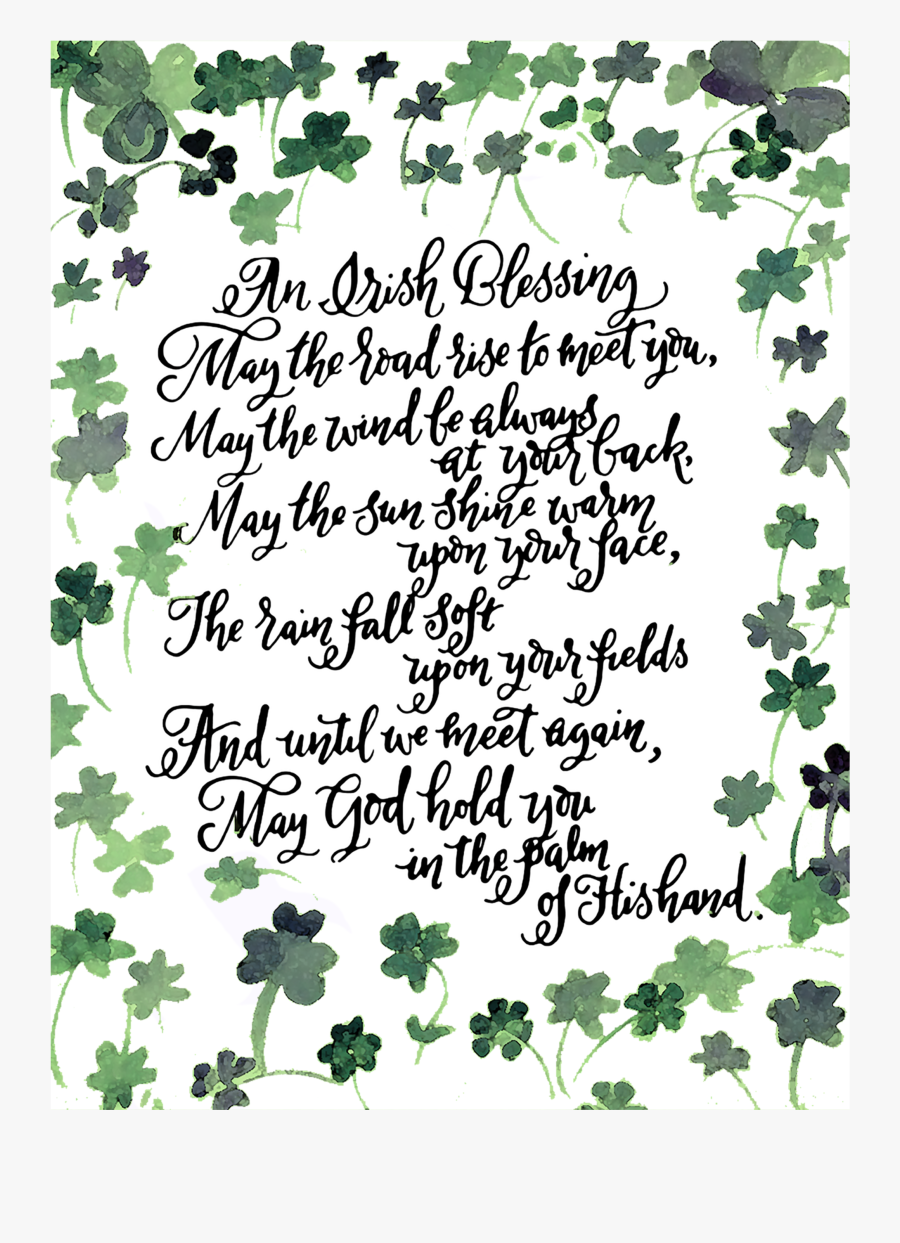 An Irish Blessing
May the road rise to meet you,
May the wind be always
at your back,
May the sun shine warm
upon your face,
The rain fall soft
upon your fields
And until we meet again,
May God hold you
in the palm
of His hand.